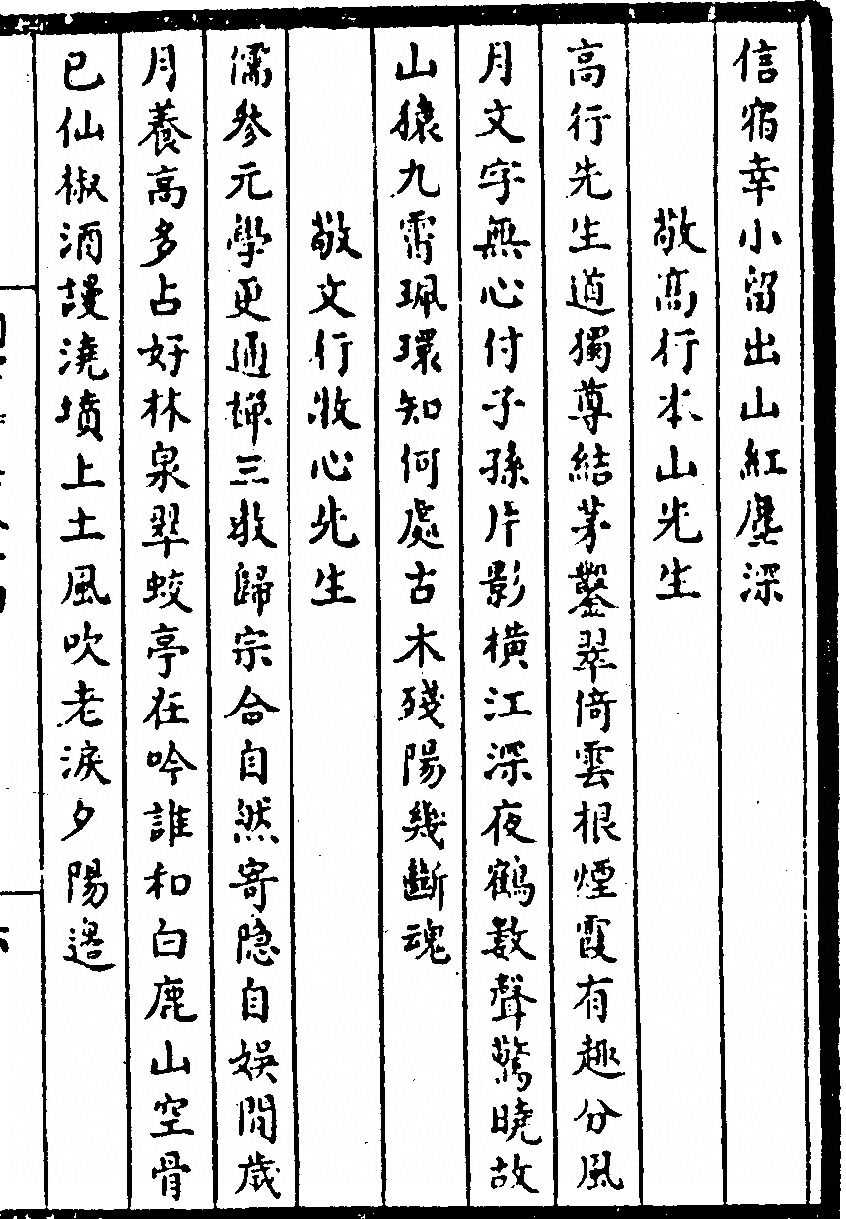 信宿幸小留出山紅塵深
敬高行本山先生
高行先生道獨尊結茅鑿翠倚雲根煙霞有趣分風
月文字無心付子孫片影橫江深夜鶴數聲驚曉故
山猿九霄珮環知何處古木殘陽幾斷魂
敬文行牧心先生
儒參元學更通禪三教歸宗合自然寄隐自娛閒歲
月養高多占好林泉翠蛟亭在吟誰和白鹿山空骨
已仙椒酒謾澆墳上土風吹老淚夕陽邊